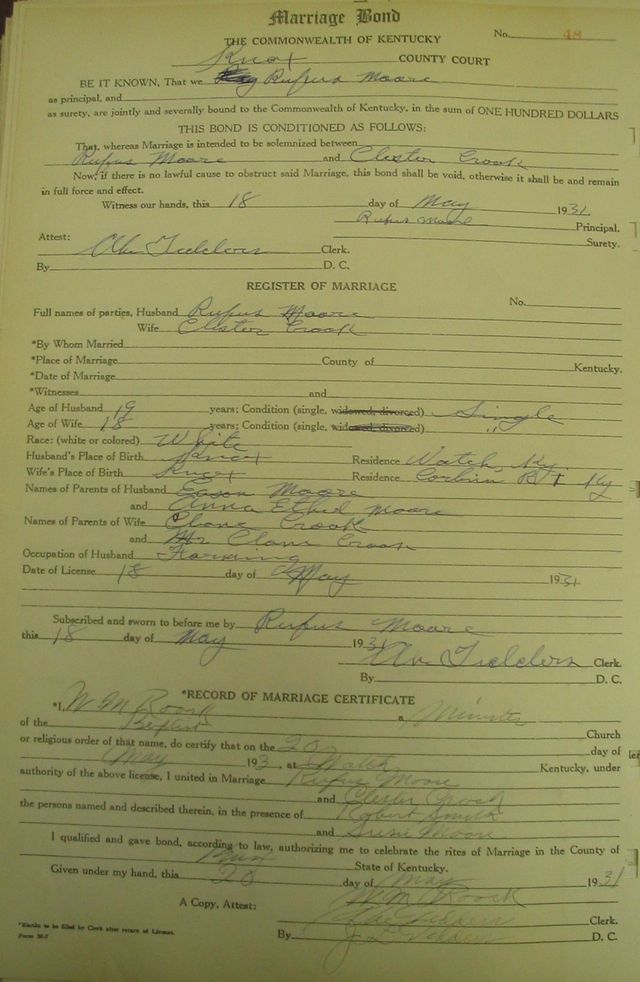 Marriage Bond
No. 48
THE COMMONWEALTH OF KENTUCKY
Knox COUNTY COURT
BE IT KNOWN, That we Rufus Moore
as principal, and
as surety, are jointly and severally bound to the Commonwealth of Kentucky, in the sum of ONE HUNDRED DOLLARS
THIS BOND IS CONDITIONED AS FOLLOWS:
That, whereas Marriage is intended to be solemnized between
Rufus Moore and Clester Crook
Now, if there is no lawful cause to obstruct said Marriage, this bond shall be void, otherwise it shall be and remain
in full force and effect.
Witness our hands, this 18 day of May 1931.
Rufus Moore Principal.
Surety.
Attest:
Clerk.
By D. C.
REGISTER OF MARRIAGE
No.
Full names of parties, Husband Rufus Moore
Wife Clester Crook
*By Whom Married
*Place of Marriage County of Kentucky.
*Date of Marriage
*Witnesses and
Age of Husband 19 years; Condition (single, widowed, divorced) Single
Age of Wife 18 years; Condition (single, widowed, divorced) "
Race: (white or colored) White
Husband's Place of Birth Knox Residence Watch, Ky
Wife's Place of Birth Knox Residence Corbin R 1 Ky
Names of Parents of Husband Eason Moore
and Anna Ethel Moore
Names of Parents of Wife Clane Crook
and Mr Clane Crook
Occupation of Husband Farming
Date of License 18 day of May 1931
Subscribed and sworn to before me by Rufus Moore
this 18 day of May 1931
Clerk.
By D. C.
*RECORD OF MARRIAGE CERTIFICATE
*I, W M Roark a Minister
of the Baptist Church
or religious order of that name, do certify that on the 20 day of
May 193, at Watch Kentucky, under
authority of the above license, I united in Marriage Rufus Moore
and Clester Crook
the persons named and described therein, in the presence of Robert Smith
and Susie Moore
I qualified and gave bond, according to law, authorizing me to celebrate the rites of Marriage in the County of
Knox State of Kentucky.
Given under my hand, this 20 day of May 1931
W. M. Roark
A Copy, Attest: Clerk.
By D. C.
*Blanks to be filled by Clerk after return of License.